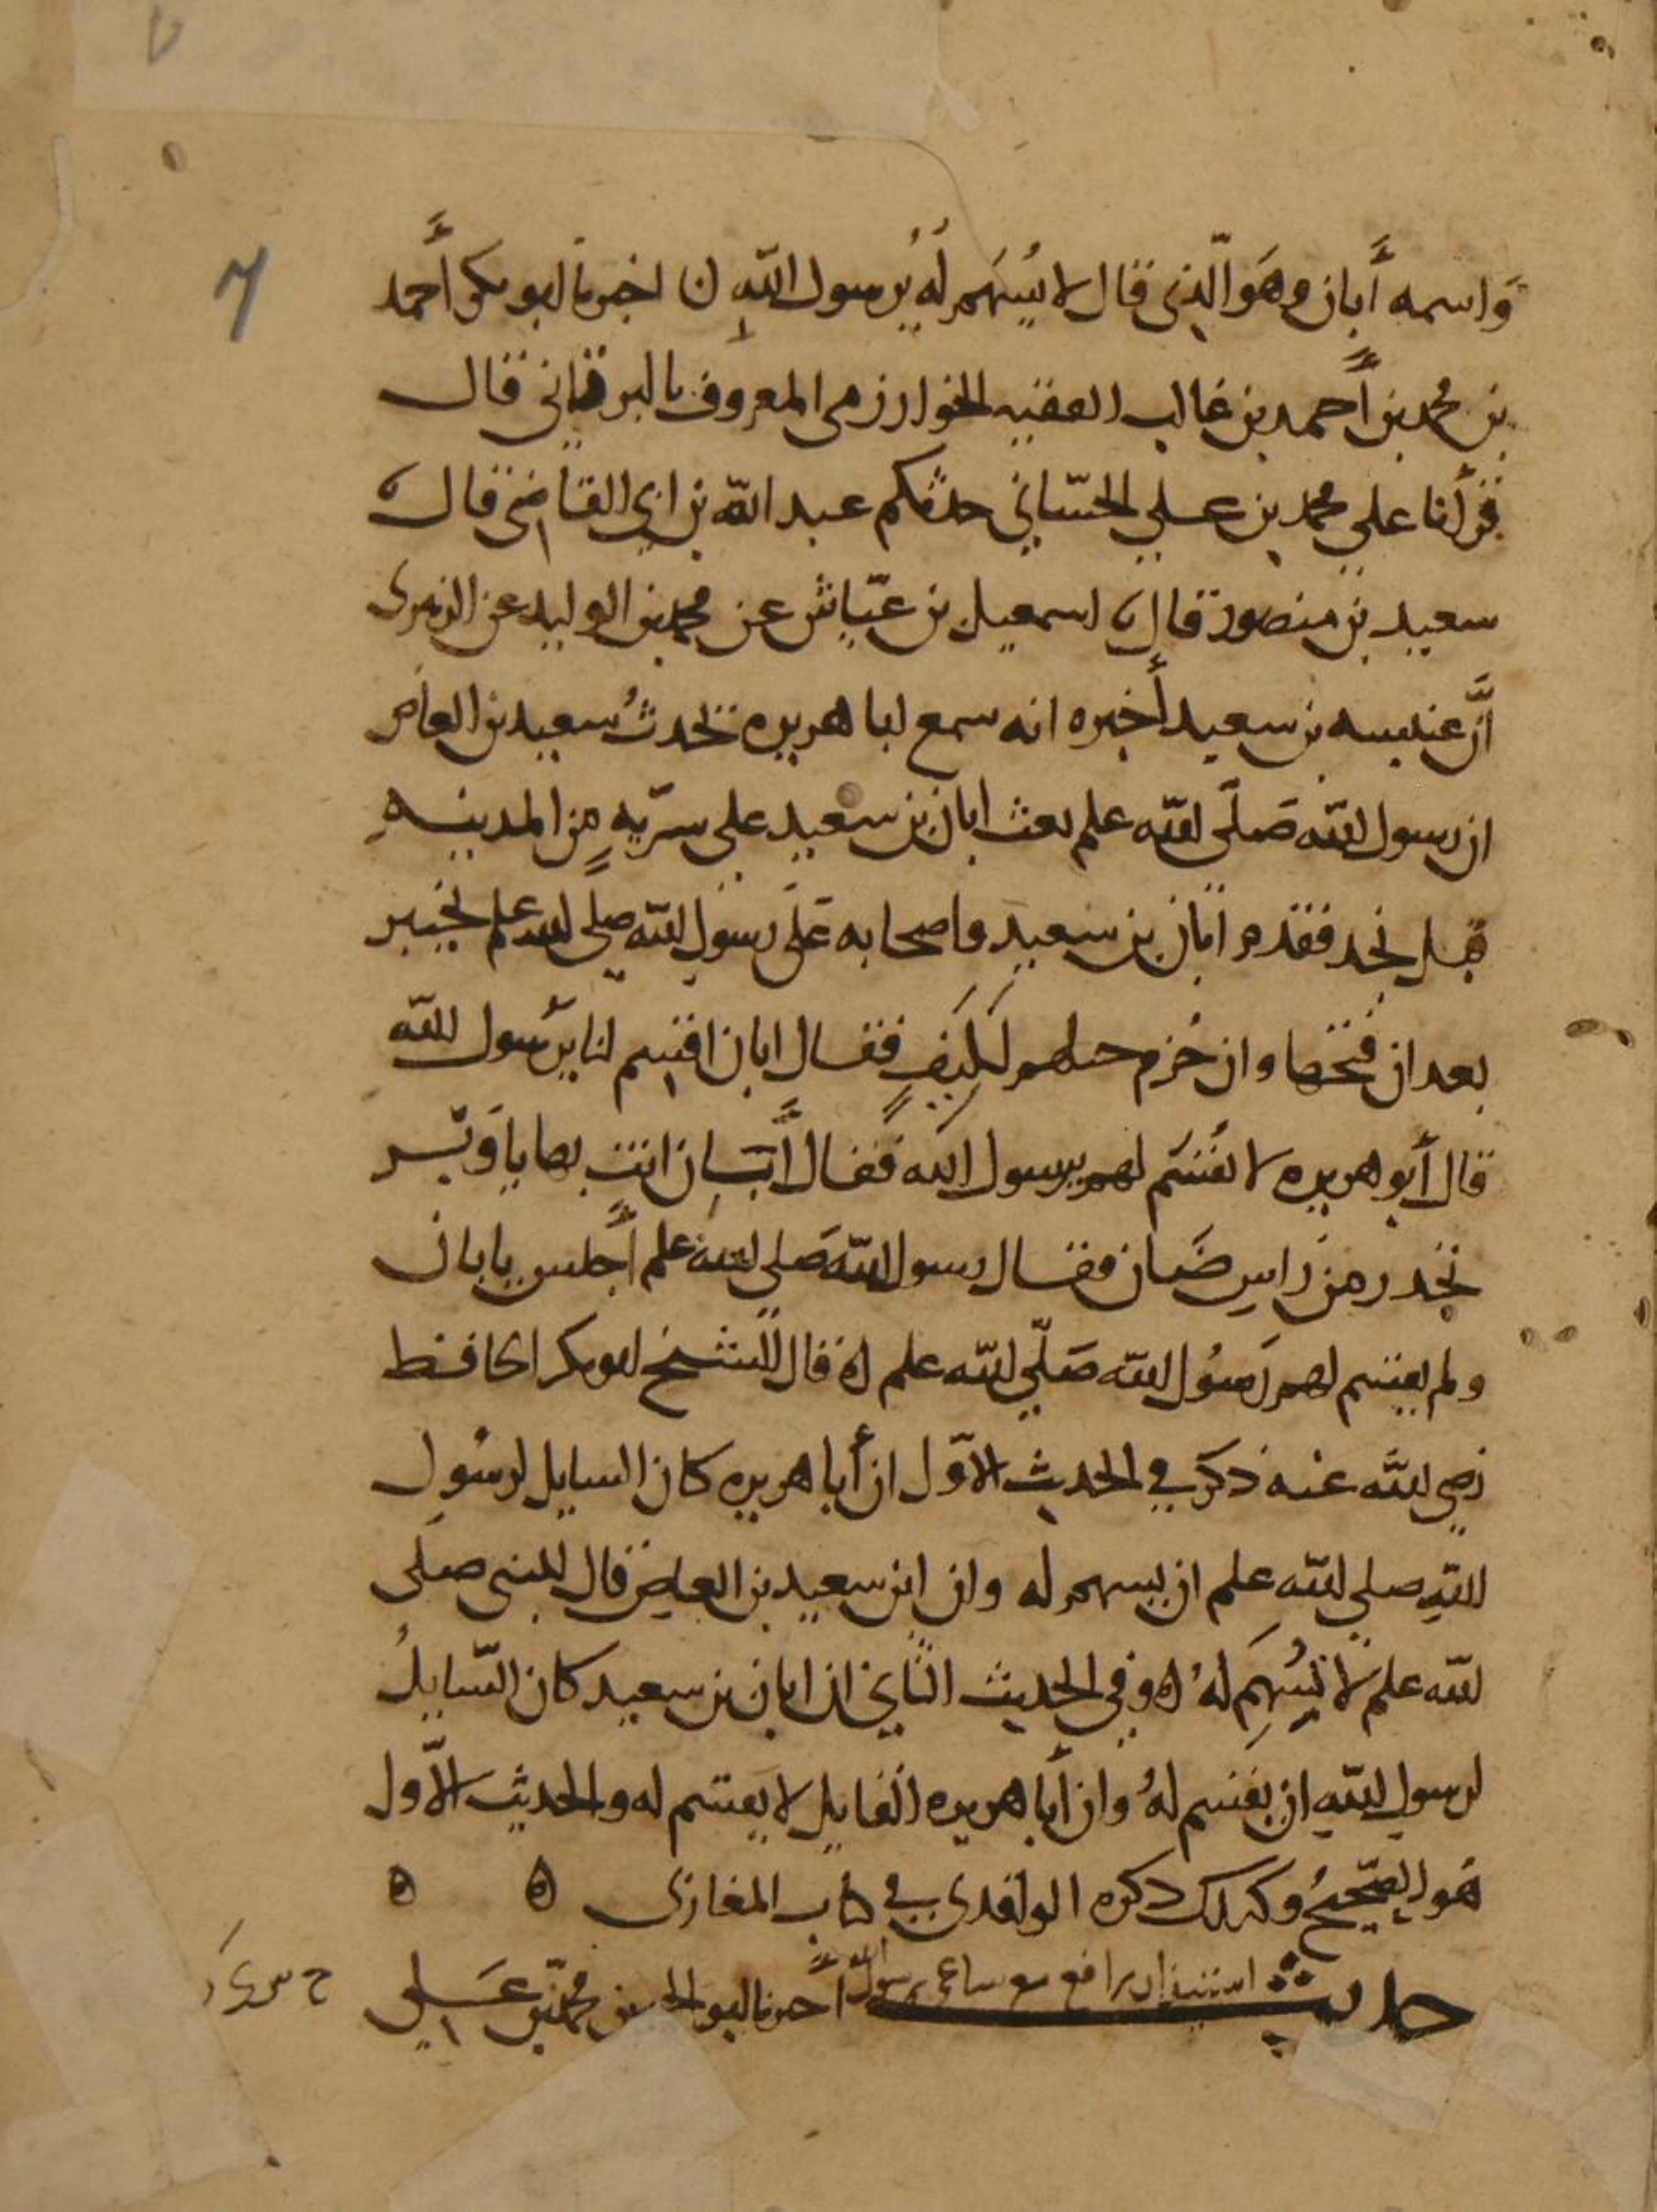 واسمه أبان وهو الذي قال لا يسهم له يرسول الله ن اخبرنا ابو بكر أحمد
بن محمد بن أحمد بن غالب الفقيه الخوارزمي المعروف بالبرقاني قال
قرأنا علي محمد بن علي الحساني حدثكم عبد الله بن ابي القاضي قال
سعيد بن منصور قال اسمعيل بن عياش عن محمد بن الوليد عن الزهري
أن عنبسه بن سعيد أخبره انه سمع ابا هريره يحدث سعيد بن العاص
ان رسول الله صلى الله علم بعث ابان بن سعيد على سريه من المدينه
قبل نجد فقدم ابان بن سعيد واصحابه على رسول الله صلى الله علم بخيبر
بعد ان فتحها وان حزم خيلهم لليف فقال ابان اقسم لنا يرسول الله
قال أبو هريره لا تقسم لهم يرسول الله فقال أبان انت بها يا وبر
تحدر من راس ضان فقال رسول الله صلى الله علم أجلس يا بان
ولم يقسم لهم رسول الله صلى الله علم ه قال الشيخ ابو بكر الحافظ
رضي الله عنه ذكر في الحديث الاول ان أبا هريره كان السايل لرسول
الله صلى الله علم ان يسهم له وان ابن سعيد بن العاص قال للنبي صلى
الله علم لا تسهم له ه وفي الحديث الثاني ان ابان بن سعيد كان السايل
لرسول الله ان يقسم له وان أبا هريره القايل لا يقسم له والحديث الاول
هو الصحيح وكذلك ذكره الواقدي في كتاب المغازي ه ه
حديث رافع رسول الله أخبرنا ابو الحسين محمد بن علي